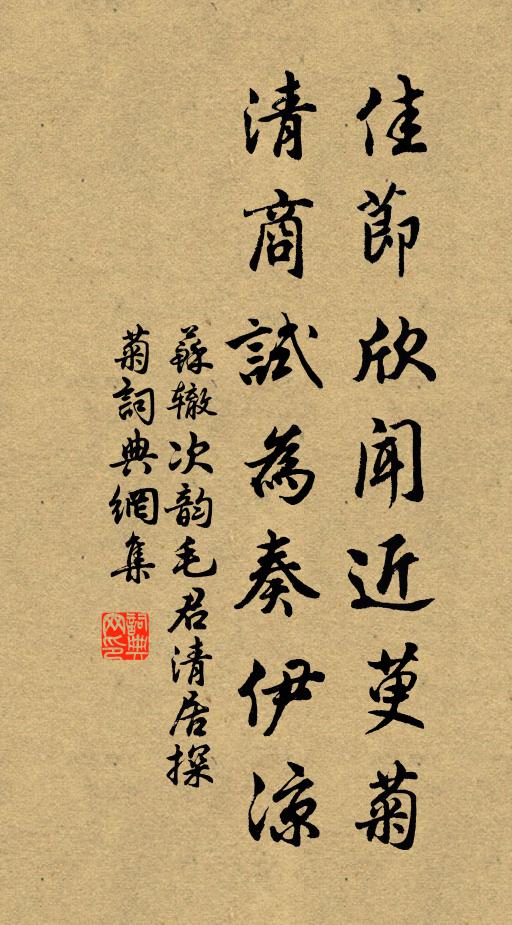 佳節欣聞近萸菊
清商試為奏伊涼
蘇辙次韵毛君清居探
菊詞典網集
詞典网印